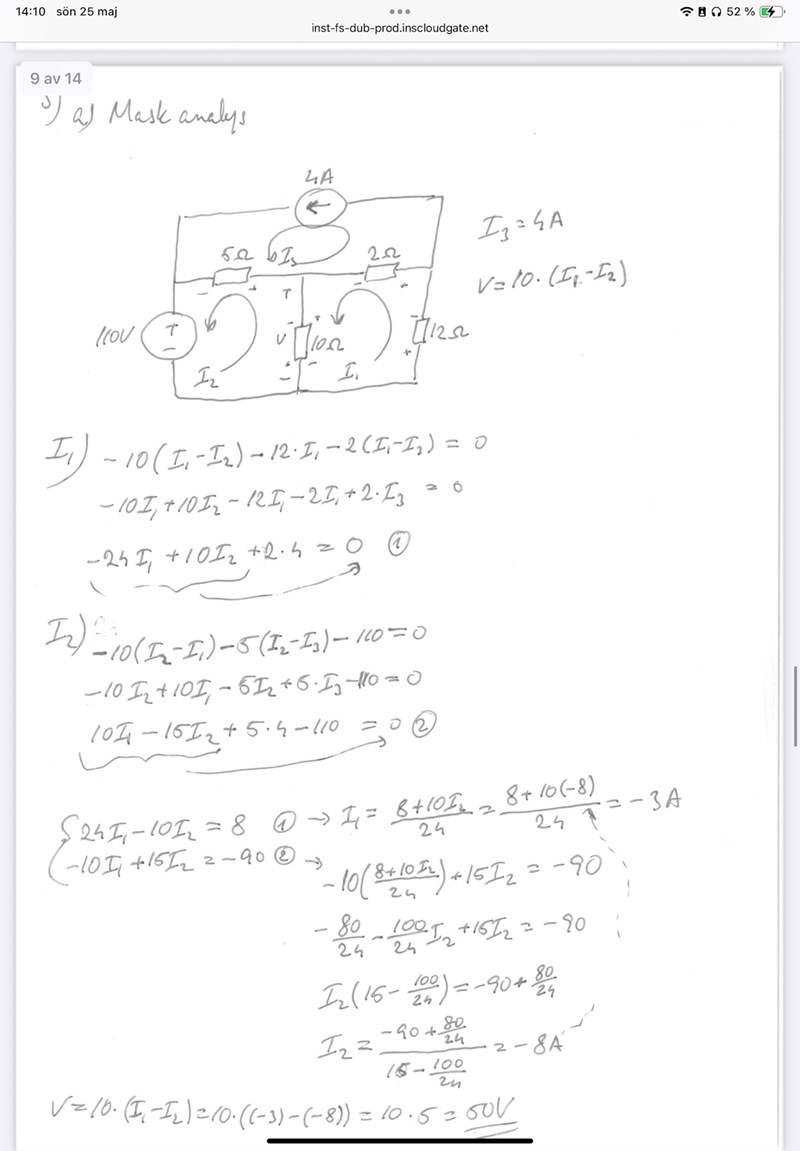 14:10 sön 25 maj
52 %
inst-fs-dub-prod.inscloudgate.net
9 av 14
a) Mask analys
4A
I₃ = 4A
5Ω I₃ 2Ω
V = 10 · (I₁ - I₂)
110V + - I₂ V 10Ω I₁ 12Ω
I₁) -10(I₁-I₂) - 12·I₁ - 2(I₁-I₃) = 0
-10I₁ + 10I₂ - 12I₁ - 2I₁ + 2·I₃ = 0
-24I₁ + 10I₂ + 2·4 = 0 ①
I₂) -10(I₂-I₁) - 5(I₂-I₃) - 110 = 0
-10I₂ + 10I₁ - 5I₂ + 5·I₃ - 110 = 0
10I₁ - 15I₂ + 5·4 - 110 = 0 ②
{24I₁ - 10I₂ = 8 ① → I₁ = (8+10I₂)/24 = (8+10(-8))/24 = -3A
-10I₁ + 15I₂ = -90 ② →
-10((8+10I₂)/24) + 15I₂ = -90
-80/24 - 100/24 I₂ + 15I₂ = -90
I₂(15 - 100/24) = -90 + 80/24
I₂ = (-90 + 80/24)/(15 - 100/24) = -8A
V = 10·(I₁-I₂) = 10·((-3)-(-8)) = 10·5 = 50V